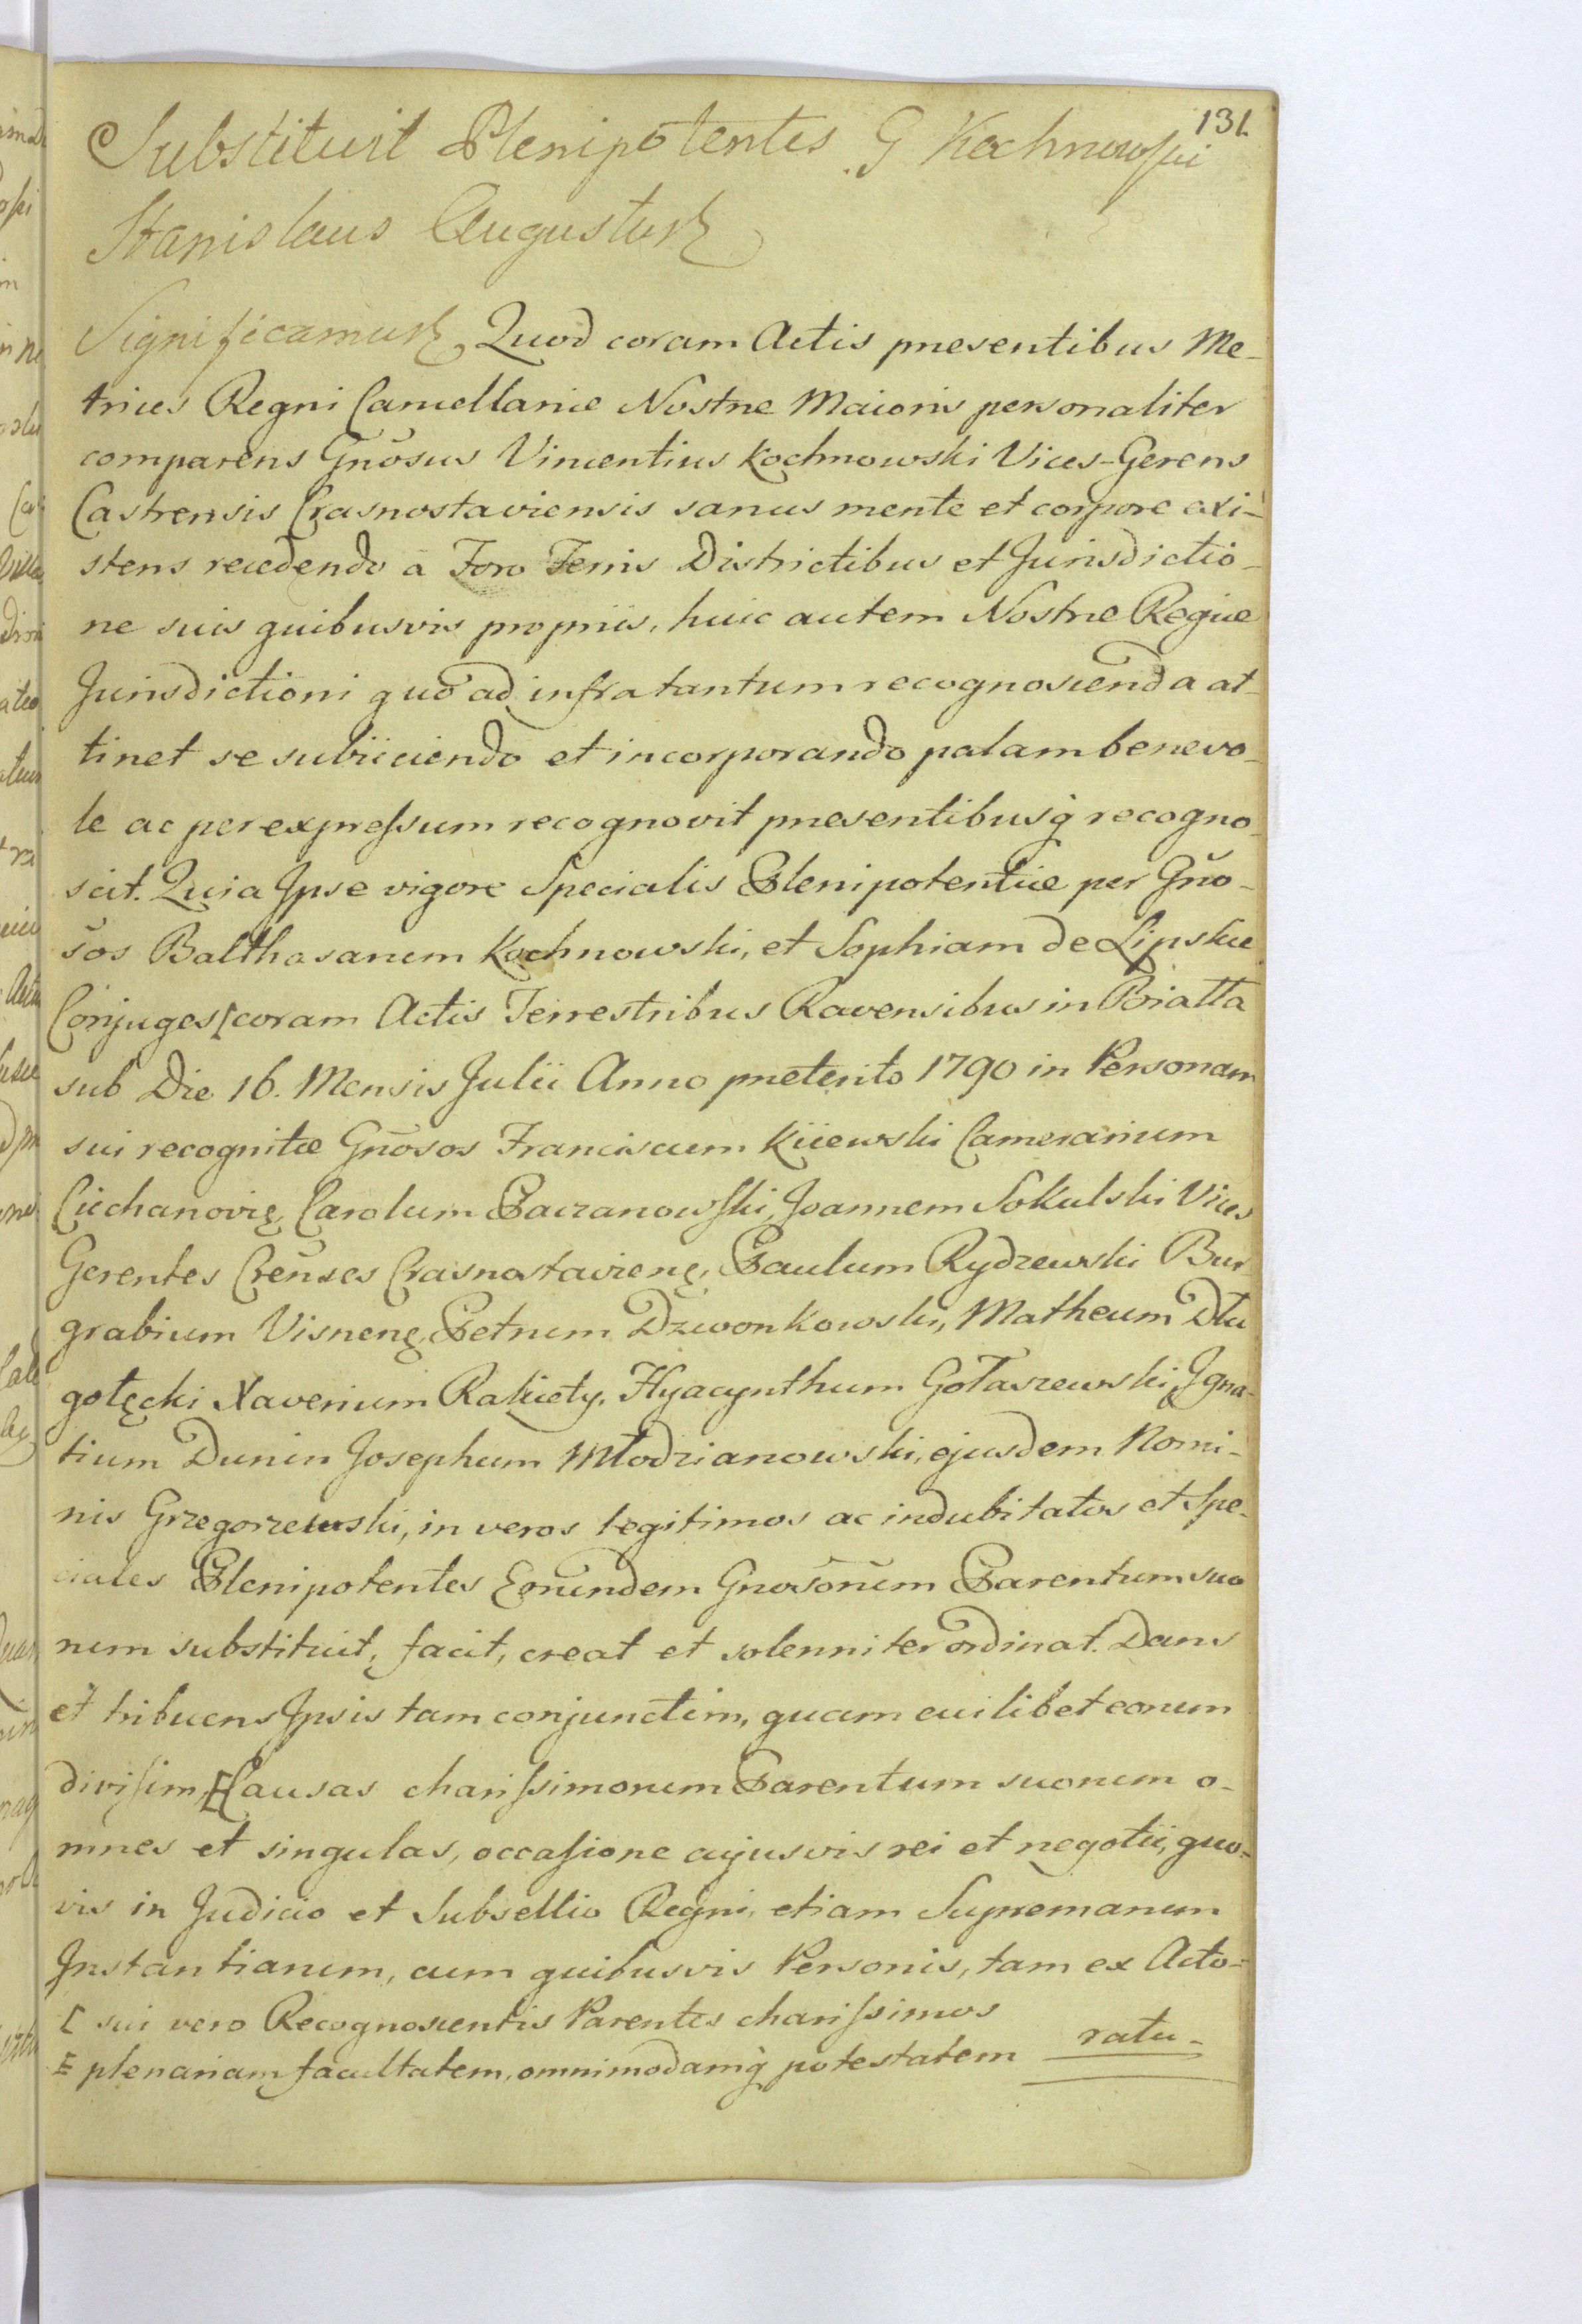 131.
Substituit Plenipotentes G Kochnowski
Stanislaus Augustus
Significamus, Quod coram Actis presentibus Me-
trices Regni Cancellariæ Nostræ Maioris personaliter
comparens Gnosus Vincentius Kochnowski Vices-Gerens
Castrensis Crasnostaviensis sanus mente et corpore exi-
stens recedendo a Foro Terris Districtibus et Jurisdictio-
ne suis quibusvis propriis, huic autem Nostræ Regiæ
Jurisdictioni quo ad infra tantum recognoscenda at-
tinet se subiiciendo et incorporando palam benevo-
le ac per expressum recognovit presentibusq̀ recogno-
scit. Quia Ipse vigore Specialis Plenipotentiæ per Gño-
sos Balthasarum Kochnowski, et Sophiam de Lipskie
Conjuges [coram Actis Terrestribus Ravensibus in Biatta
sub Die 16. Mensis Julii Anno preterito 1790 in Personam
sui recognitæ Gñosos Franciscum Kiiewski Camerarium
Ciechanovię, Carolum Paczanowski, Joannem Sokulski Vices
Gerentes Creñses Crasnostavienę, Paulum Rydzewski Bur-
grabium Visnenę, Petrum Dzwonkowski, Matheum Dłu
gołęcki Xaverium Rakiety, Hyacynthum Gołaszewski, Igna-
tium Dunin Josephum Młodzianowski, ejusdem Nomi-
nis Grzegorzewski, in veros legitimos ac indubitatos et Spe-
ciales Plenipotentes Eorundem Gnosorum Parentum suo
rum substituit, facit, creat et solenniter ordinat. Dans
et tribuens Ipsis tam conjunctim, quam cuilibet eorum
divisim, E Causas charissimorum Parentum suorum o-
mnes et singulas, occasione cujusvis rei et negotii, quo-
vis in Judicio et Subsellio Regni, etiam Supremarum
Instantiarum, cum quibusvis Personis, tam ex Acto-
[ sui vero Recognoscentis Parentes charissimos
E plenariam facultatem, omnimodamq̀ potestatem
ratu-